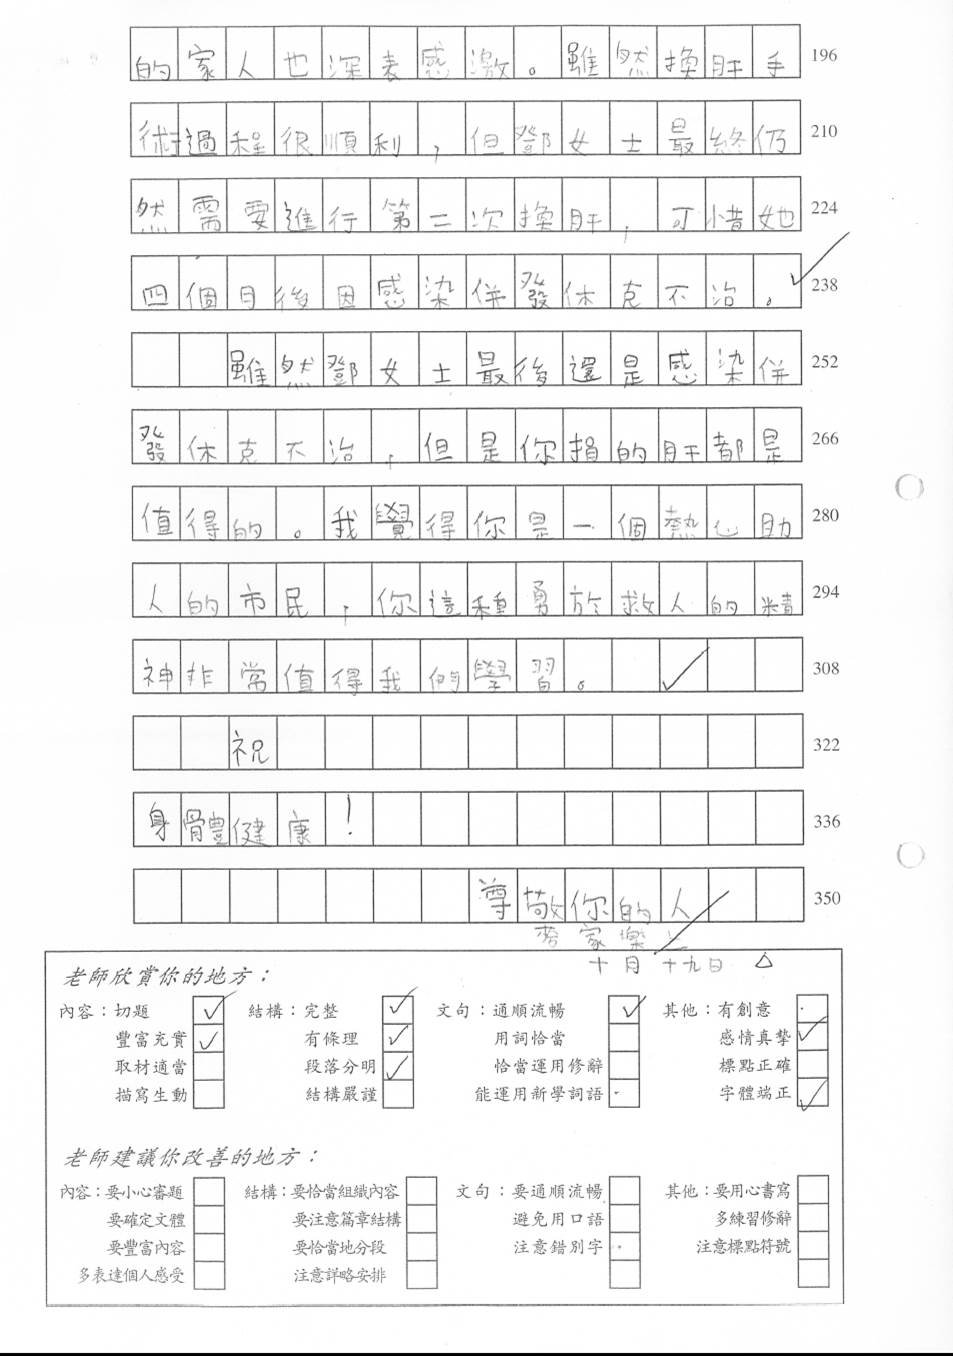 的家人也深表感激。雖然換肝手 196
術過程很順利,但鄧女士最終仍 210
然需要進行第二次換肝,可惜她 224
四個月後因感染併發休克不治。 238
雖然鄧女士最後還是感染併 252
發休克不治,但是你捐的肝都是 266
值得的。我覺得你是一個熱心助 280
人的市民,你這種勇於救人的精 294
神非常值得我們學習。 308
祝 322
身體健康! 336
尊敬你的人 350
家樂上
十月十九日
老師欣賞你的地方:
內容:切題 結構:完整 文句:通順流暢 其他:有創意
豐富充實 有條理 用詞恰當 感情真摯
取材適當 段落分明 恰當運用修辭 標點正確
描寫生動 結構嚴謹 能運用新學詞語 字體端正
老師建議你改善的地方:
內容:要小心審題 結構:要恰當組織內容 文句:要通順流暢 其他:要用心書寫
要確定文體 要注意篇章結構 避免用口語 多練習修辭
要豐富內容 要恰當地分段 注意錯別字 注意標點符號
多表達個人感受 注意詳略安排